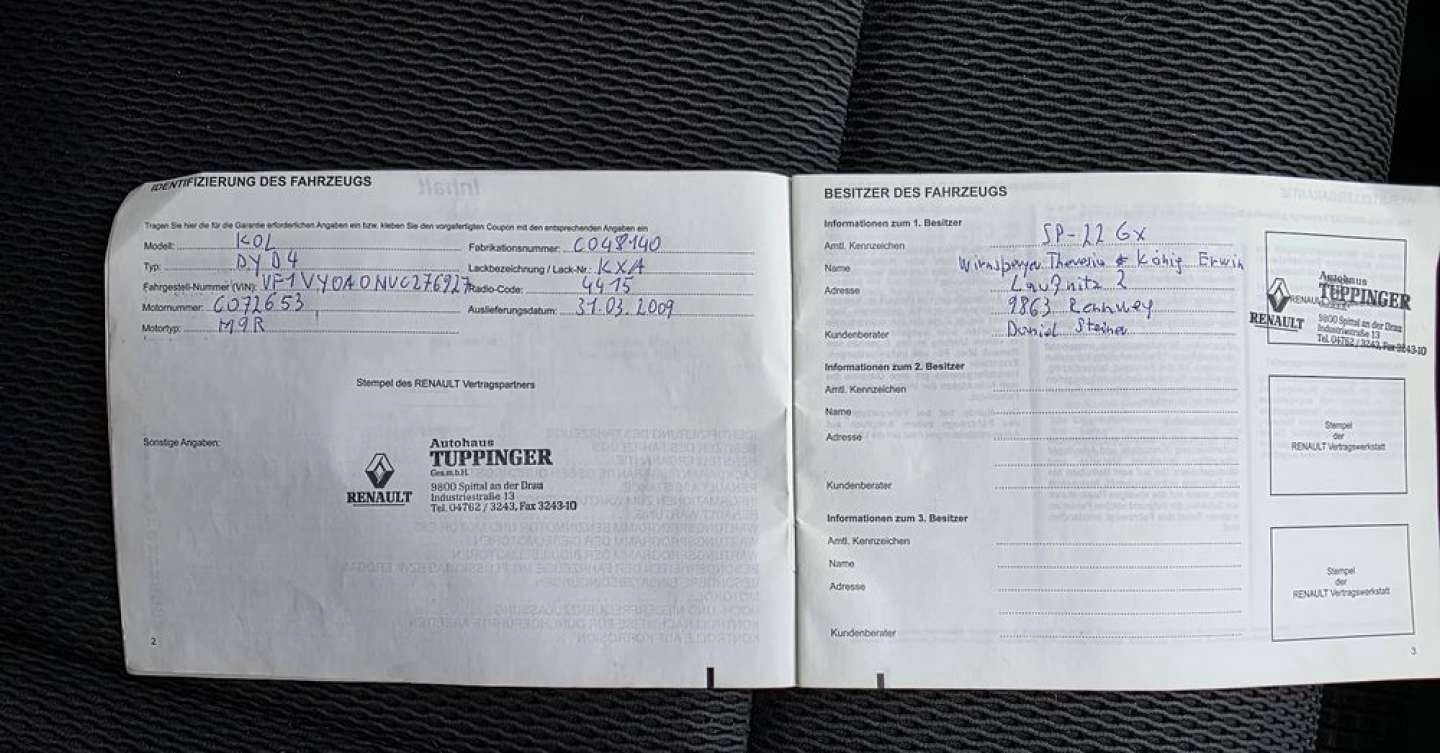 IDENTIFIZIERUNG DES FAHRZEUGS
Tragen Sie hier die für die Garantie erforderlichen Angaben ein bzw. kleben Sie den vorgefertigten Coupon mit den entsprechenden Angaben ein
Modell: KOL
Fabrikationsnummer: C048140
Typ: DYD4
Lackbezeichnung / Lack-Nr.: KXA
Fahrgestell-Nummer (VIN): VF1VY0A0NUC276927
Radio-Code: 4415
Motornummer: C072653
Auslieferungsdatum: 31.03.2009
Motortyp: M9R
Stempel des RENAULT Vertragspartners
Sonstige Angaben:
RENAULT
Autohaus
TUPPINGER
Ges.m.b.H.
9800 Spittal an der Drau
Industriestraße 13
Tel. 04762 / 3243, Fax 3243-10
2
BESITZER DES FAHRZEUGS
Informationen zum 1. Besitzer
Amtl. Kennzeichen SP-22 GX
Name Theresia & König Erwin
Adresse Laußnitz 2
9863 Rennweg
Kundenberater Daniel Steiner
RENAULT
Autohaus
TUPPINGER
9800 Spittal an der Drau
Industriestraße 13
Tel. 04762 / 3243, Fax 3243-10
Informationen zum 2. Besitzer
Amtl. Kennzeichen
Name
Adresse
Kundenberater
Stempel
der
RENAULT Vertragswerkstatt
Informationen zum 3. Besitzer
Amtl. Kennzeichen
Name
Adresse
Kundenberater
Stempel
der
RENAULT Vertragswerkstatt
3